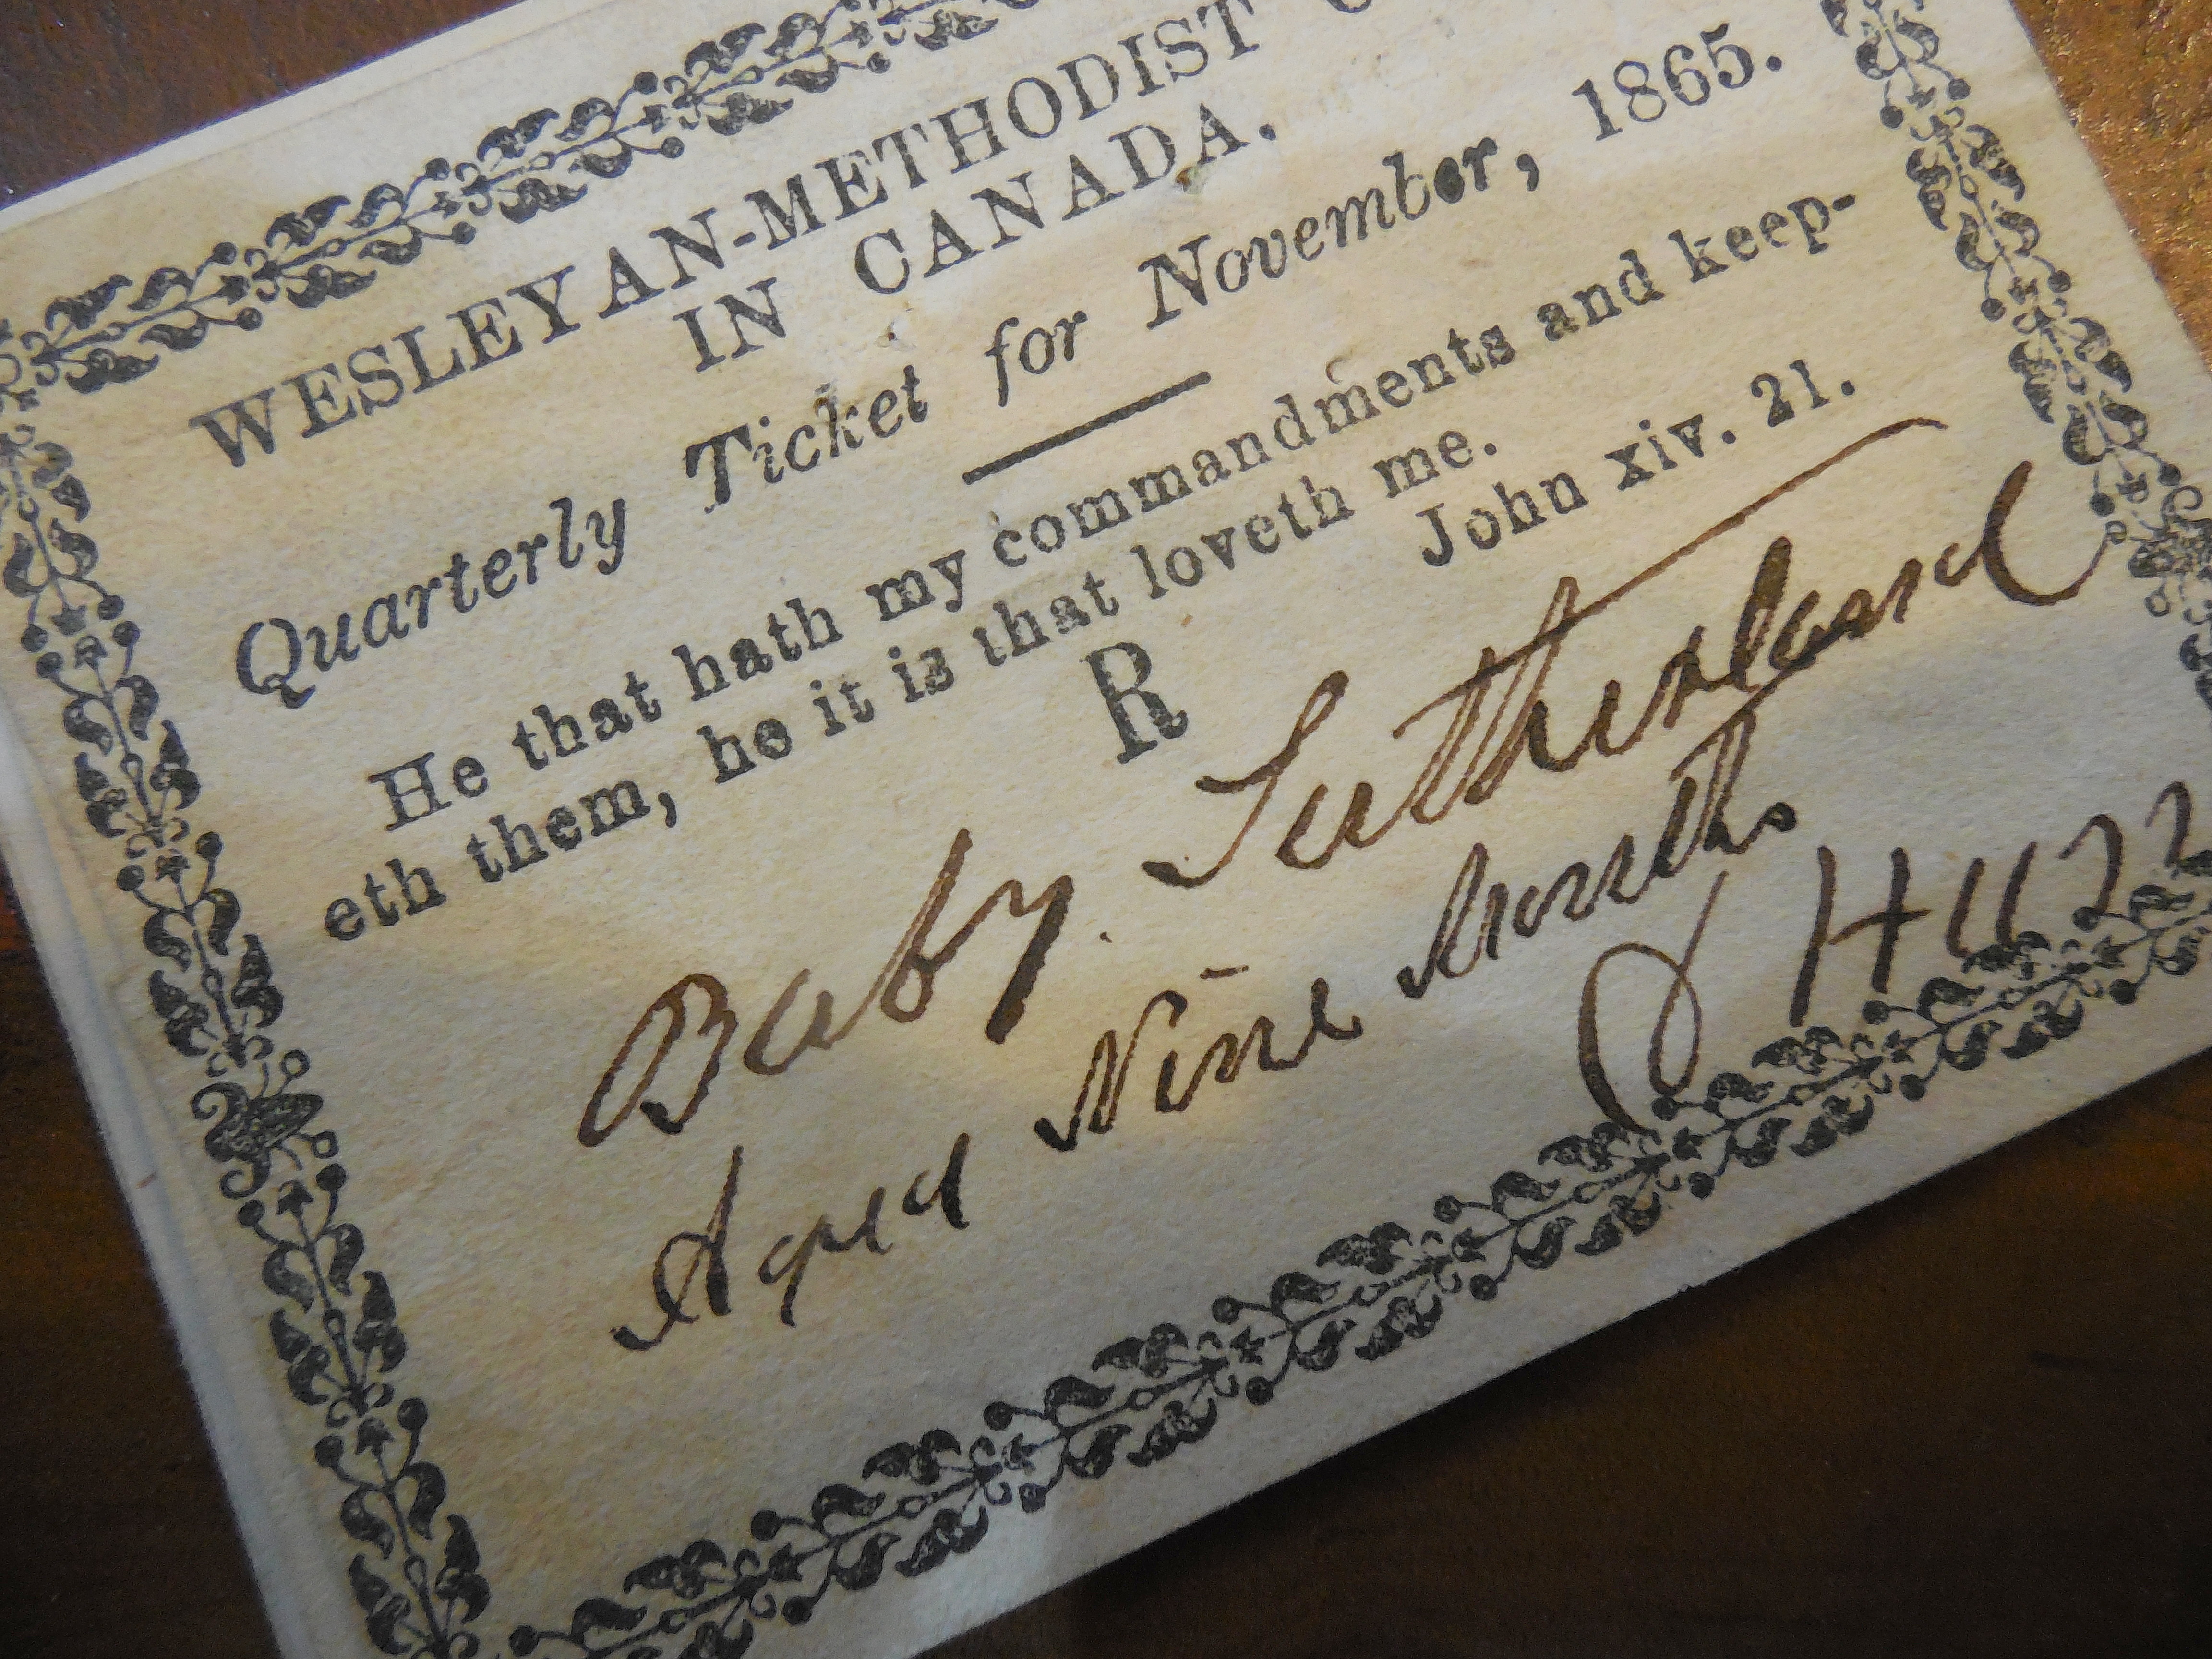 WESLEYAN-METHODIST
IN CANADA.
Quarterly Ticket for November, 1865.
He that hath my commandments and keep-
eth them, he it is that loveth me.
John xiv. 21.
R
Baby Sutherland
Aged Nine Months